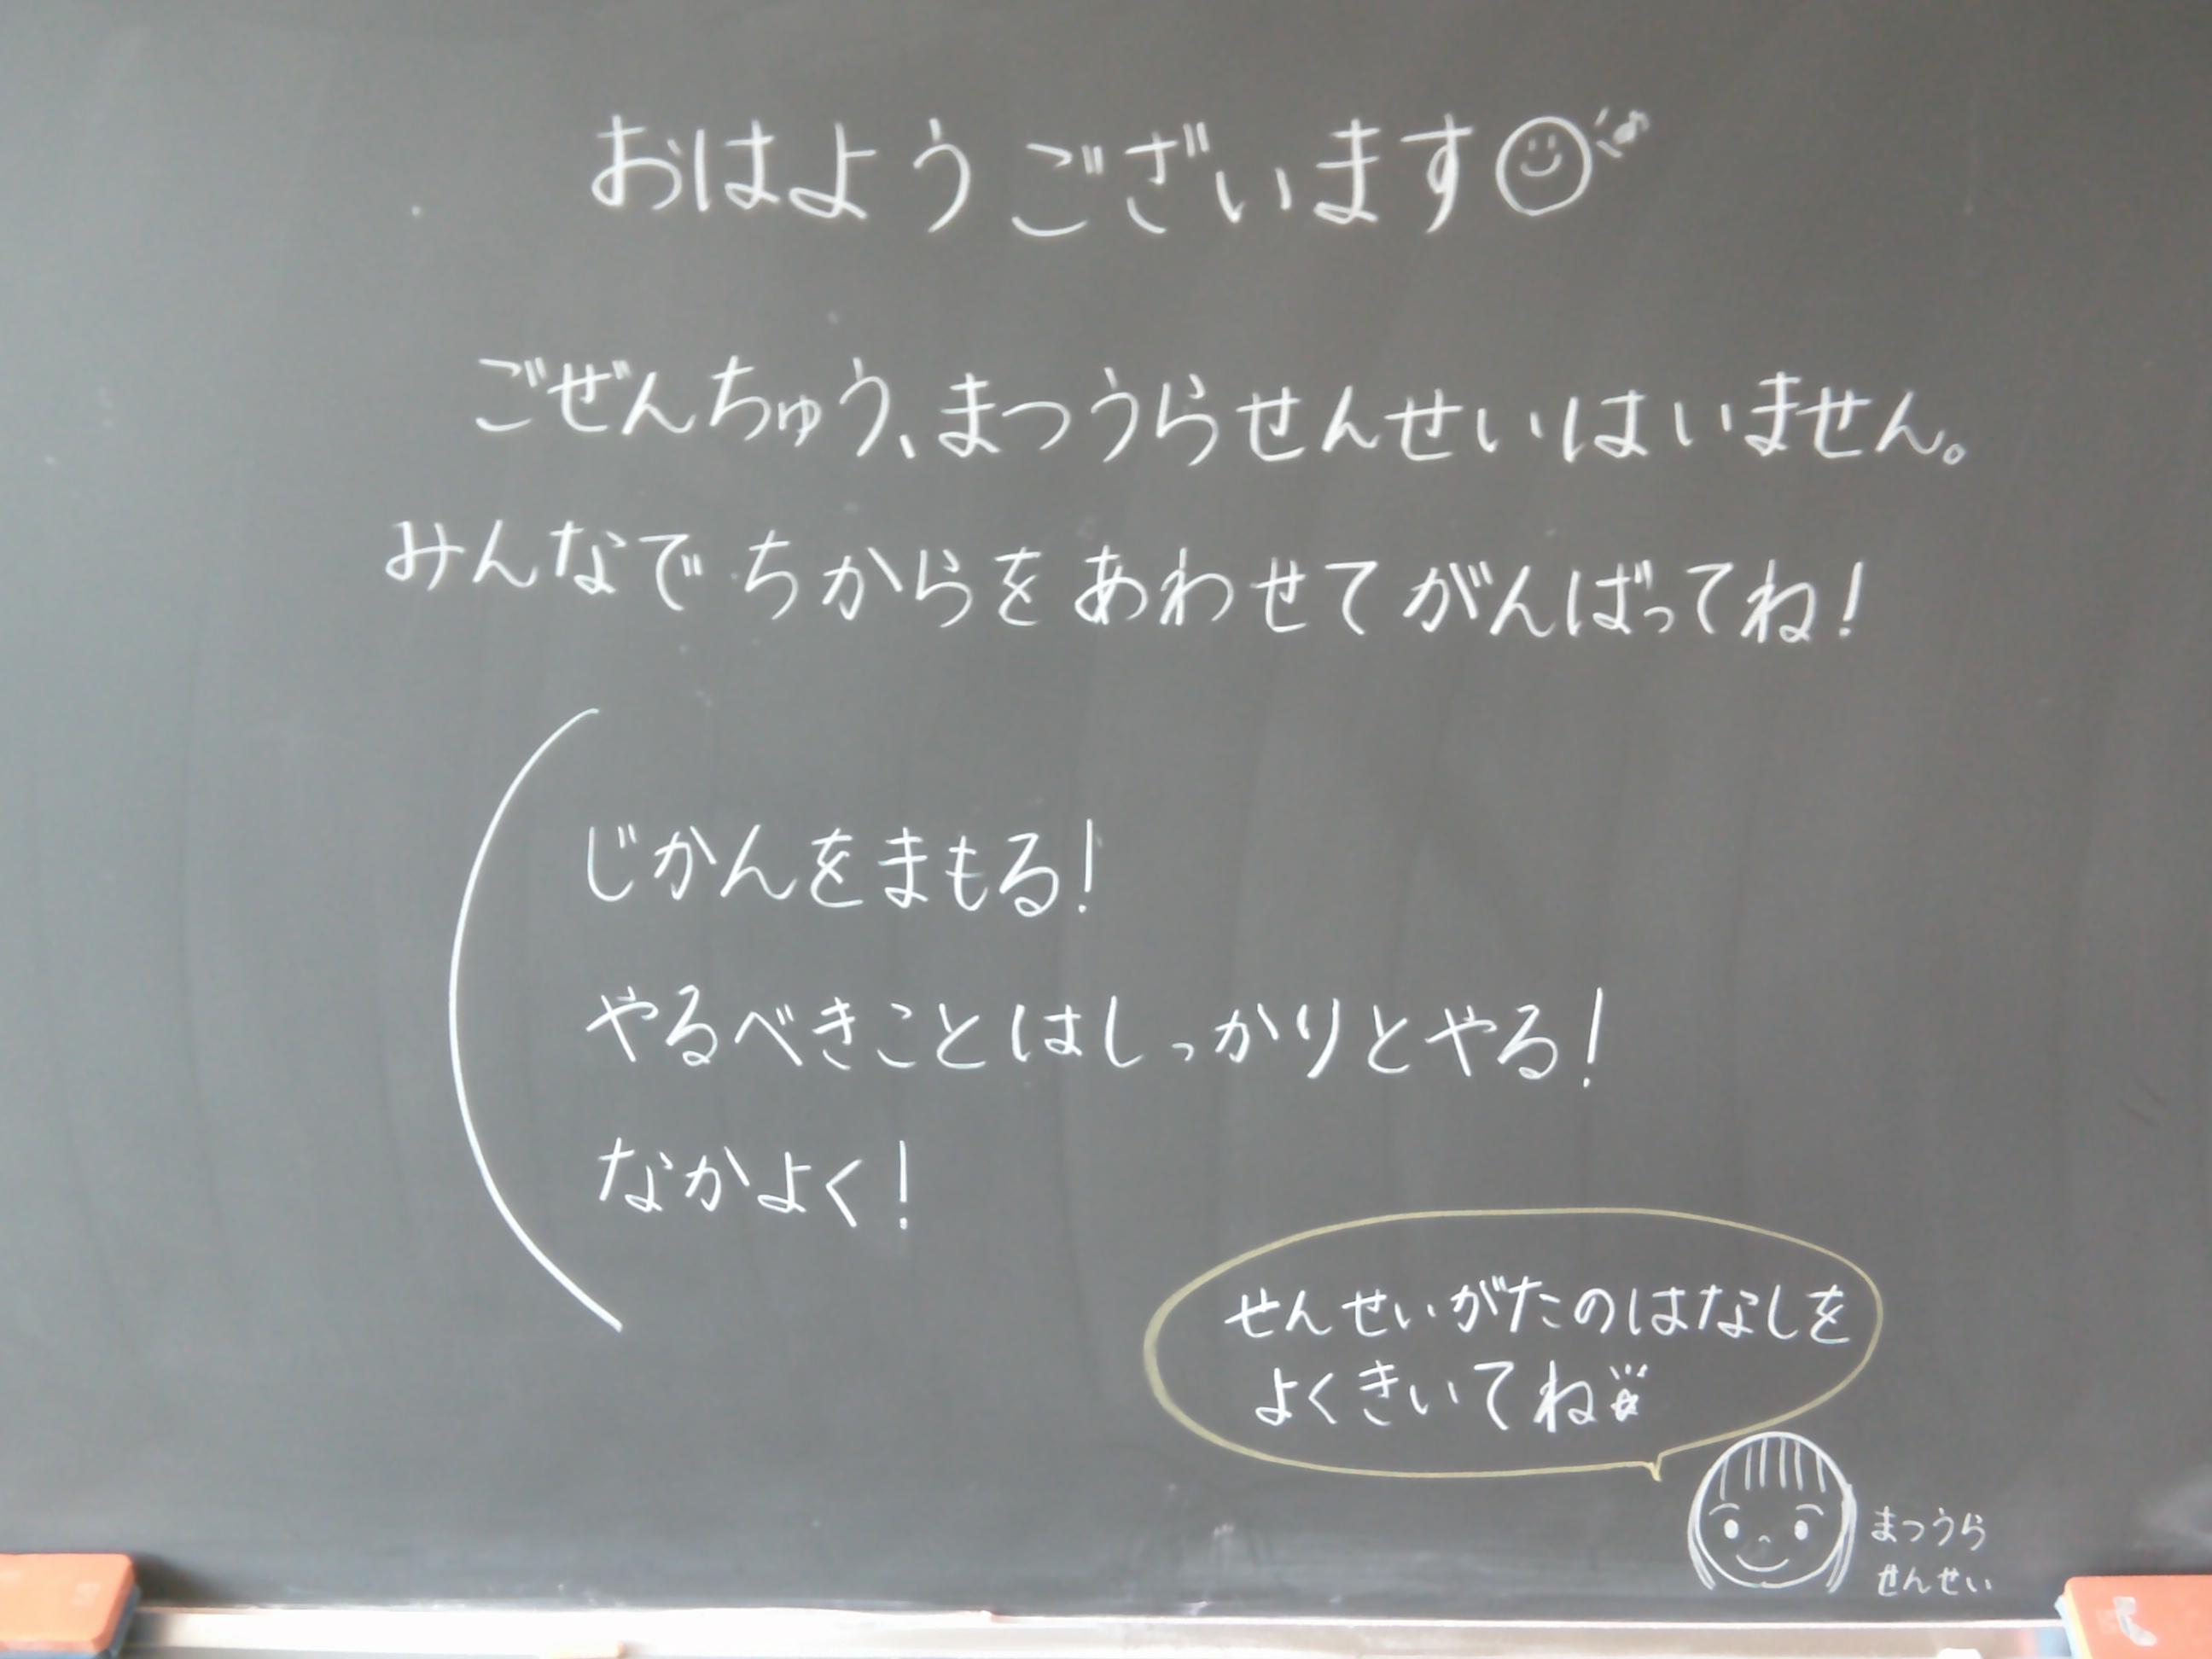 おはようございます
ごぜんちゅう、まつうらせんせいはいません。
みんなでちからをあわせてがんばってね!
じかんをまもる!
やるべきことはしっかりとやる!
なかよく!
せんせいがたのはなしを
よくきいてね
まつうら
せんせい